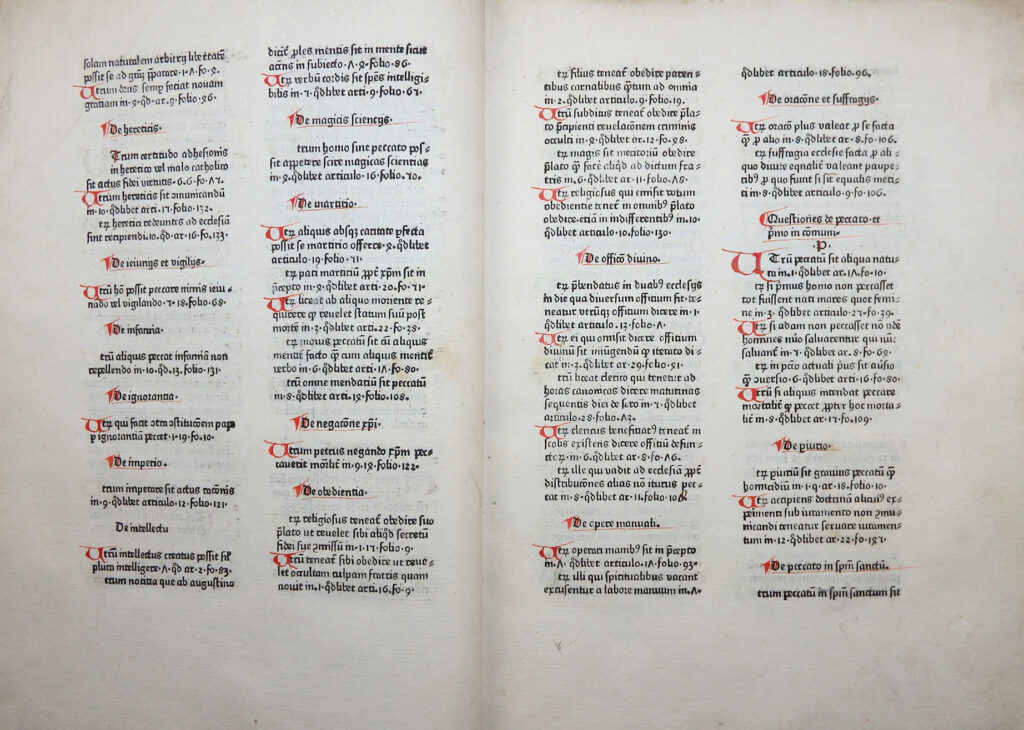 solam naturalem arbitrij libertatē
possit se ad grāȝ p̄parare·1·Λ·fo·ꝯ.
Utrum deus semp faciat nouam
gratiam in·8·qđ·ar·9·folio·86·
De hereticis·
Utrum certitudo adhesionis
in heretico vel malo catholico
sit actus fidei virtutis·6·6·fo·Λ7.
Utrum hereticis sit cōmunicandū
in·10·qđlibet arti·17·folio·132.
utꝝ heretici redeuntes ad ecclesiā
sint recipiendi.10.qđ·ar·16·fo.133.
De ieiunijs et vigilijs·
Utrū hō possit peccare nimis ieiu⸗
nādo vel vigilando·7·18·folio·68·
De infamia·
utrū aliquis peccat infamiā non
repellendo in·10·qđ.13.folio·131·
De ignorantia·
Utꝝ qui facit cōtra cōstitucōem pape
ꝑ ignorantiā peccet·1·19·fo·10·
De imperio.
utrum imperare sit actus racōnis
in·9·qđlibet articulo·12·folio·121·
De intellectu
Utrū intellectus creatus possit sīl
plura intelligere·Λ·qđ ar·2·fo·83.
utrum noticia que ab augustino
dicit̄ ꝓles mentis sit in mente sicut
accn̄s in subiecto·Λ·8·folio·86·
Utꝝ verbū cordis sit spēs intelligi⸗
bilis in·7·qđlibet arti·9·folio·67·
De magicis sciencijs·
utrum homo sine peccato pos⸗
sit appetere scire magicas sciencias
in·8·qđlibet articulo·16·folio.70.
De martirio·
Utꝝ aliquis absqȝ caritate ꝑfecta
possit se martirio offerre·8·qđlibet
articulo·19·folio·71·
utꝝ pati martiriū ꝓpt̄ xp̄m sit in
p̄cepto in·8·qđlibet arti·20·fo·71·
Utꝝ liceat ab aliquo moriente re⸗
quirere ꝙ reuelet statum suū post
mortē in·3·qđlibet arti·22·fo·38·
utꝝ maius peccatū sit cū aliquis
mentit̄ facto ꝙ cum aliquis mentit̄
verbo in·6·qđlibet arti·1Λ·fo·80·
utrū omne mendatiū sit peccatū
in·8·qđlibet arti.19·folio·108.
De negacōne xp̄i·
Utrum petrus negando xp̄m pec⸗
cauerit mortalit̄ in·9·18·folio·122·
De obediencia·
utꝝ religiosus teneat̄ obedire suo
p̄lato ut reuelet sibi aliqđ secretū
fidei sue cōmissū in·1·17·folio·9·
Utrū teneat̄ sibi obedire ut reue⸗
let occultam culpam fratris quam
nouit in·1·qđlibet arti·16·fo·9·
utꝝ filius teneat̄ obedire paren⸗
tibus carnalibus quātum ad omnia
in·2·qđlibet articulo·9·folio·19.
Utrū subditus teneat̄ obedire p̄la⸗
to p̄cipienti reuelacōnem criminis
occulti in·8·qđlibet·ar·12·fo·98·
utꝝ magis sit meritoriū obedire
p̄lato ꝙ facē aliqđ ad dictum fra⸗
tris in·6·qđlibet ar·11·folio·Λ8·
Utꝝ religiosus qui emisit votum
obedientie teneat̄ in omnibꝰ p̄lato
obedire·etiā in indifferentibꝰ in.10·
qđlibet articulo·10·folio·130·
De officio diuino.
utꝝ p̄bendatus in duabꝰ ecclesijs
in die qua diuersum officium fit·te⸗
neatur utrūqȝ officium dicere in·1·
qđlibet articulo·13·folio·Λ·
Utꝝ ei qui omisit dicere officium
diuinū sit iniūgendū ꝙ iterato di⸗
cat in·3·qđlibet ar·29·folio·81·
utrū liceat clerico qui tenetur ad
horas canonicas dicere matutinas
sequentis diei de sero in·7·qđlibet
articulo·28·folio·Λ2.
Utꝝ clericus beneficiatꝰ teneat̄ in
scolis existens dicere officiū defun⸗
ctoꝝ·in·6·qđlibet ar·8·fo·Λ6.
utꝝ ille qui vadit ad ecclesiā ꝓpt̄
distribucōnes alias nō iturus pec⸗
cat in·8·qđlibet ar·11·folio·106·
De opere manuali.
Utꝝ operari manibꝰ sit in p̄cepto
in.Λ·qđlibet articulo·1Λ·folio·93·
utꝝ illi qui spiritualibus vacant
excusentur a labore manuum in.Λ·
qđlibet articulo·18·folio·96.
De oracōne et suffragijs·
Utꝝ oracio plus valeat ꝑ se facta
ꝙ ꝑ alio in·8·qđlibet ar·8·fo·106.
utꝝ suffragia ecclesie facta ꝑ ali⸗
quo diuite equalit̄ valeant paupe⸗
ribꝰ ꝑ quo fiunt si sit equalis meri⸗
ti in·8·qđlibet articulo·9·fo·106.
Questiones de peccato·et
p̄mio in cōmuni·
·P·
UTrū peccatū sit aliqua natu⸗
ra in.1·qđlibet ar·1Λ·fo·10·
utꝝ si p̄mus homo non peccasset
tot fuissent nati mares quot femi⸗
ne in·3·qđlibet articulo·27·fo·39.
Utꝝ si adam non peccasset nō iidē
homines nūc saluarentur qui nūc
saluant̄ in·7·qđlibet ar.8·fo·69·
utꝝ in pctō actuali p̄us sit auersio
ꝙ ꝯuersio·6·qđlibet arti·16·fo·80·
Utrū si aliquis intendat peccare
mortalit̄ ꝙ peccet ꝓpter hoc morta⸗
lit̄ in·8·qđlibet ar·17·fo·109.
De piurio.
utꝝ piuriū sit grauius peccatū ꝙ
homicidiū in·1·q·ar·18·folio·10·
Utꝝ accipiens doctrinā alicuiꝰ ex⸗
perimenti sub iuramento non cōmu⸗
nicandi teneatur seruare iuramen⸗
tum in·12·qđlibet ar·22·fo·187·
De peccato in sp̄m sanctū.
utrum peccatū in sp̄m sanctum sit